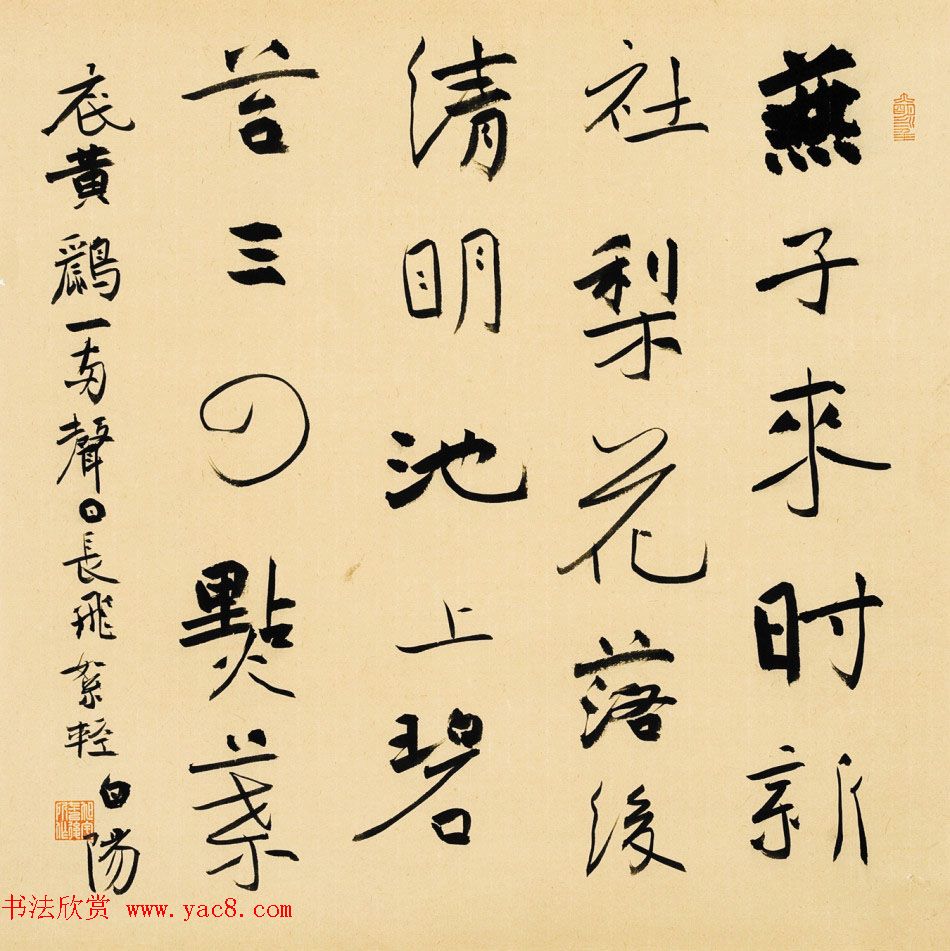 燕子來时新
社梨花落後
清明池上碧
苔三四點葉
底黄鸝一两聲日長飛絮輕 白陽
书法欣赏 www.yac8.com